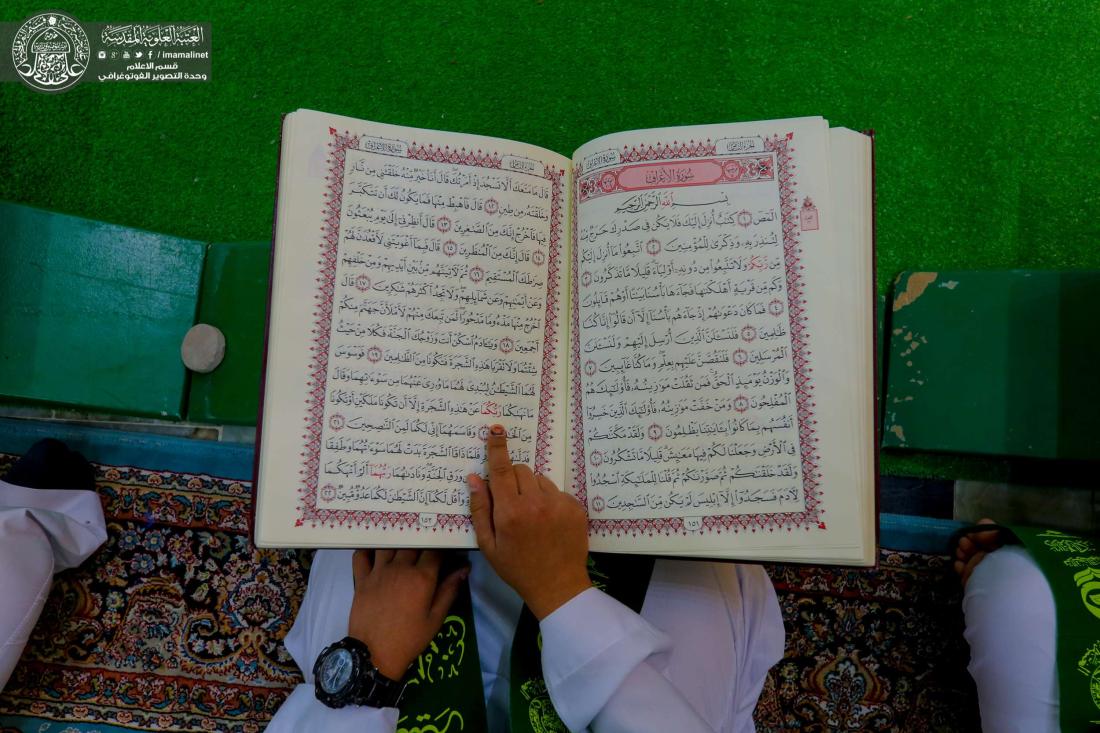 العتبة العلوية المقدسة
/ imamalinet
قسم الاعلام
وحدة التصوير الفوتوغرافي
الجزء الثامن
سورة الأعراف
سُورَةُ الأَعْرَافِ
بِسْمِ ٱللَّهِ ٱلرَّحْمَٰنِ ٱلرَّحِيمِ
الٓمٓصٓ ١ كِتَٰبٌ أُنزِلَ إِلَيْكَ فَلَا يَكُن فِى صَدْرِكَ حَرَجٌ مِّنْهُ
لِتُنذِرَ بِهِۦ وَذِكْرَىٰ لِلْمُؤْمِنِينَ ٢ ٱتَّبِعُوا۟ مَآ أُنزِلَ إِلَيْكُم
مِّن رَّبِّكُمْ وَلَا تَتَّبِعُوا۟ مِن دُونِهِۦٓ أَوْلِيَآءَ قَلِيلًا مَّا تَذَكَّرُونَ ٣
وَكَم مِّن قَرْيَةٍ أَهْلَكْنَٰهَا فَجَآءَهَا بَأْسُنَا بَيَٰتًا أَوْ هُمْ قَآئِلُونَ
٤ فَمَا كَانَ دَعْوَىٰهُمْ إِذْ جَآءَهُم بَأْسُنَآ إِلَّآ أَن قَالُوٓا۟ إِنَّا كُنَّا
ظَٰلِمِينَ ٥ فَلَنَسْـَٔلَنَّ ٱلَّذِينَ أُرْسِلَ إِلَيْهِمْ وَلَنَسْـَٔلَنَّ
ٱلْمُرْسَلِينَ ٦ فَلَنَقُصَّنَّ عَلَيْهِم بِعِلْمٍ وَمَا كُنَّا غَآئِبِينَ ٧
وَٱلْوَزْنُ يَوْمَئِذٍ ٱلْحَقُّ فَمَن ثَقُلَتْ مَوَٰزِينُهُۥ فَأُو۟لَٰٓئِكَ هُمُ
ٱلْمُفْلِحُونَ ٨ وَمَنْ خَفَّتْ مَوَٰزِينُهُۥ فَأُو۟لَٰٓئِكَ ٱلَّذِينَ خَسِرُوٓا۟
أَنفُسَهُم بِمَا كَانُوا۟ بِـَٔايَٰتِنَا يَظْلِمُونَ ٩ وَلَقَدْ مَكَّنَّٰكُمْ
فِى ٱلْأَرْضِ وَجَعَلْنَا لَكُمْ فِيهَا مَعَٰيِشَ قَلِيلًا مَّا تَشْكُرُونَ ١٠
وَلَقَدْ خَلَقْنَٰكُمْ ثُمَّ صَوَّرْنَٰكُمْ ثُمَّ قُلْنَا لِلْمَلَٰٓئِكَةِ ٱسْجُدُوا۟
لِـَٔادَمَ فَسَجَدُوٓا۟ إِلَّآ إِبْلِيسَ لَمْ يَكُن مِّنَ ٱلسَّٰجِدِينَ ١١
١٥١
الجزء الثامن
سورة الأعراف
قَالَ مَا مَنَعَكَ أَلَّا تَسْجُدَ إِذْ أَمَرْتُكَ قَالَ أَنَا۠ خَيْرٌ مِّنْهُ خَلَقْتَنِى مِن نَّارٍ
وَخَلَقْتَهُۥ مِن طِينٍ ١٢ قَالَ فَٱهْبِطْ مِنْهَا فَمَا يَكُونُ لَكَ أَن تَتَكَبَّرَ
فِيهَا فَٱخْرُجْ إِنَّكَ مِنَ ٱلصَّٰغِرِينَ ١٣ قَالَ أَنظِرْنِىٓ إِلَىٰ يَوْمِ يُبْعَثُونَ
١٤ قَالَ إِنَّكَ مِنَ ٱلْمُنظَرِينَ ١٥ قَالَ فَبِمَآ أَغْوَيْتَنِى لَأَقْعُدَنَّ لَهُمْ
صِرَٰطَكَ ٱلْمُسْتَقِيمَ ١٦ ثُمَّ لَـَٔاتِيَنَّهُم مِّنۢ بَيْنِ أَيْدِيهِمْ وَمِنْ خَلْفِهِمْ
وَعَنْ أَيْمَٰنِهِمْ وَعَن شَمَآئِلِهِمْ وَلَا تَجِدُ أَكْثَرَهُمْ شَٰكِرِينَ ١٧ قَالَ
ٱخْرُجْ مِنْهَا مَذْءُومًا مَّدْحُورًا لَّمَن تَبِعَكَ مِنْهُمْ لَأَمْلَأَنَّ جَهَنَّمَ مِنكُمْ
أَجْمَعِينَ ١٨ وَيَٰٓـَٔادَمُ ٱسْكُنْ أَنتَ وَزَوْجُكَ ٱلْجَنَّةَ فَكُلَا مِنْ حَيْثُ
شِئْتُمَا وَلَا تَقْرَبَا هَٰذِهِ ٱلشَّجَرَةَ فَتَكُونَا مِنَ ٱلظَّٰلِمِينَ ١٩ فَوَسْوَسَ
لَهُمَا ٱلشَّيْطَٰنُ لِيُبْدِىَ لَهُمَا مَا وُۥرِىَ عَنْهُمَا مِن سَوْءَٰتِهِمَا وَقَالَ
مَا نَهَىٰكُمَا رَبُّكُمَا عَنْ هَٰذِهِ ٱلشَّجَرَةِ إِلَّآ أَن تَكُونَا مَلَكَيْنِ أَوْ تَكُونَا
مِنَ ٢٠ وَقَاسَمَهُمَآ إِنِّى لَكُمَا لَمِنَ ٱلنَّٰصِحِينَ ٢١
فَلَمَّا ذَاقَا ٱلشَّجَرَةَ بَدَتْ لَهُمَا سَوْءَٰتُهُمَا وَطَفِقَا
وَرَقِ ٱلْجَنَّةِ وَنَادَىٰهُمَا رَبُّهُمَآ أَلَمْ أَنْهَكُمَا
وَأَقُل لَّكُمَآ إِنَّ ٱلشَّيْطَٰنَ لَكُمَا عَدُوٌّ مُّبِينٌ ٢٢
١٥٢